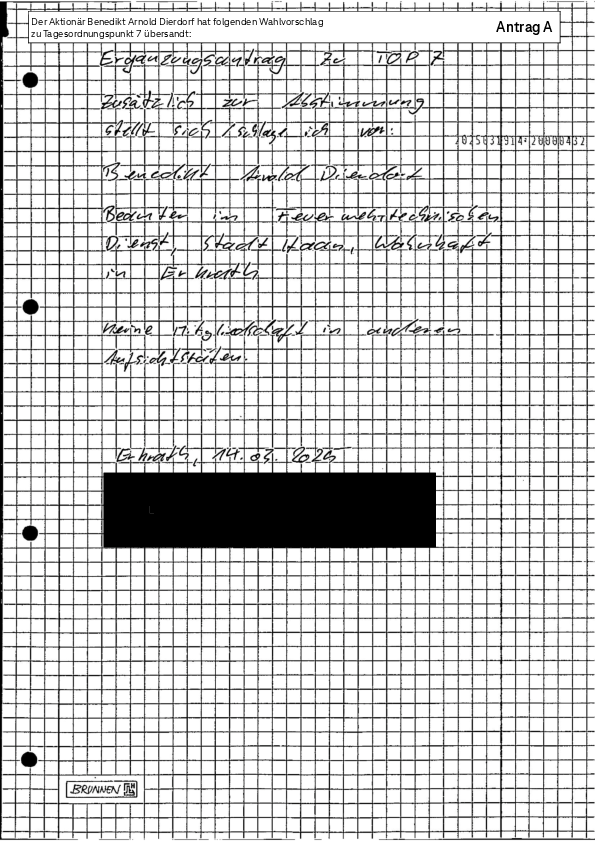 Der Aktionär Benedikt Arnold Dierdorf hat folgenden Wahlvorschlag
zu Tagesordnungspunkt 7 übersandt:
Antrag A
Ergänzungsantrag zu TOP 7
Zusätzlich zur Abstimmung
stellt sich / schlage ich vor:
2025031914-20000432
Benedikt Arnold Dierdorf
Beamter im Feuerwehrtechnischen
Dienst, Stadt Haan, Wohnhaft
in Erkrath
Keine Mitgliedschaft in anderen
Aufsichtsräten.
Erkrath, 14.03.2025
BRUNNEN